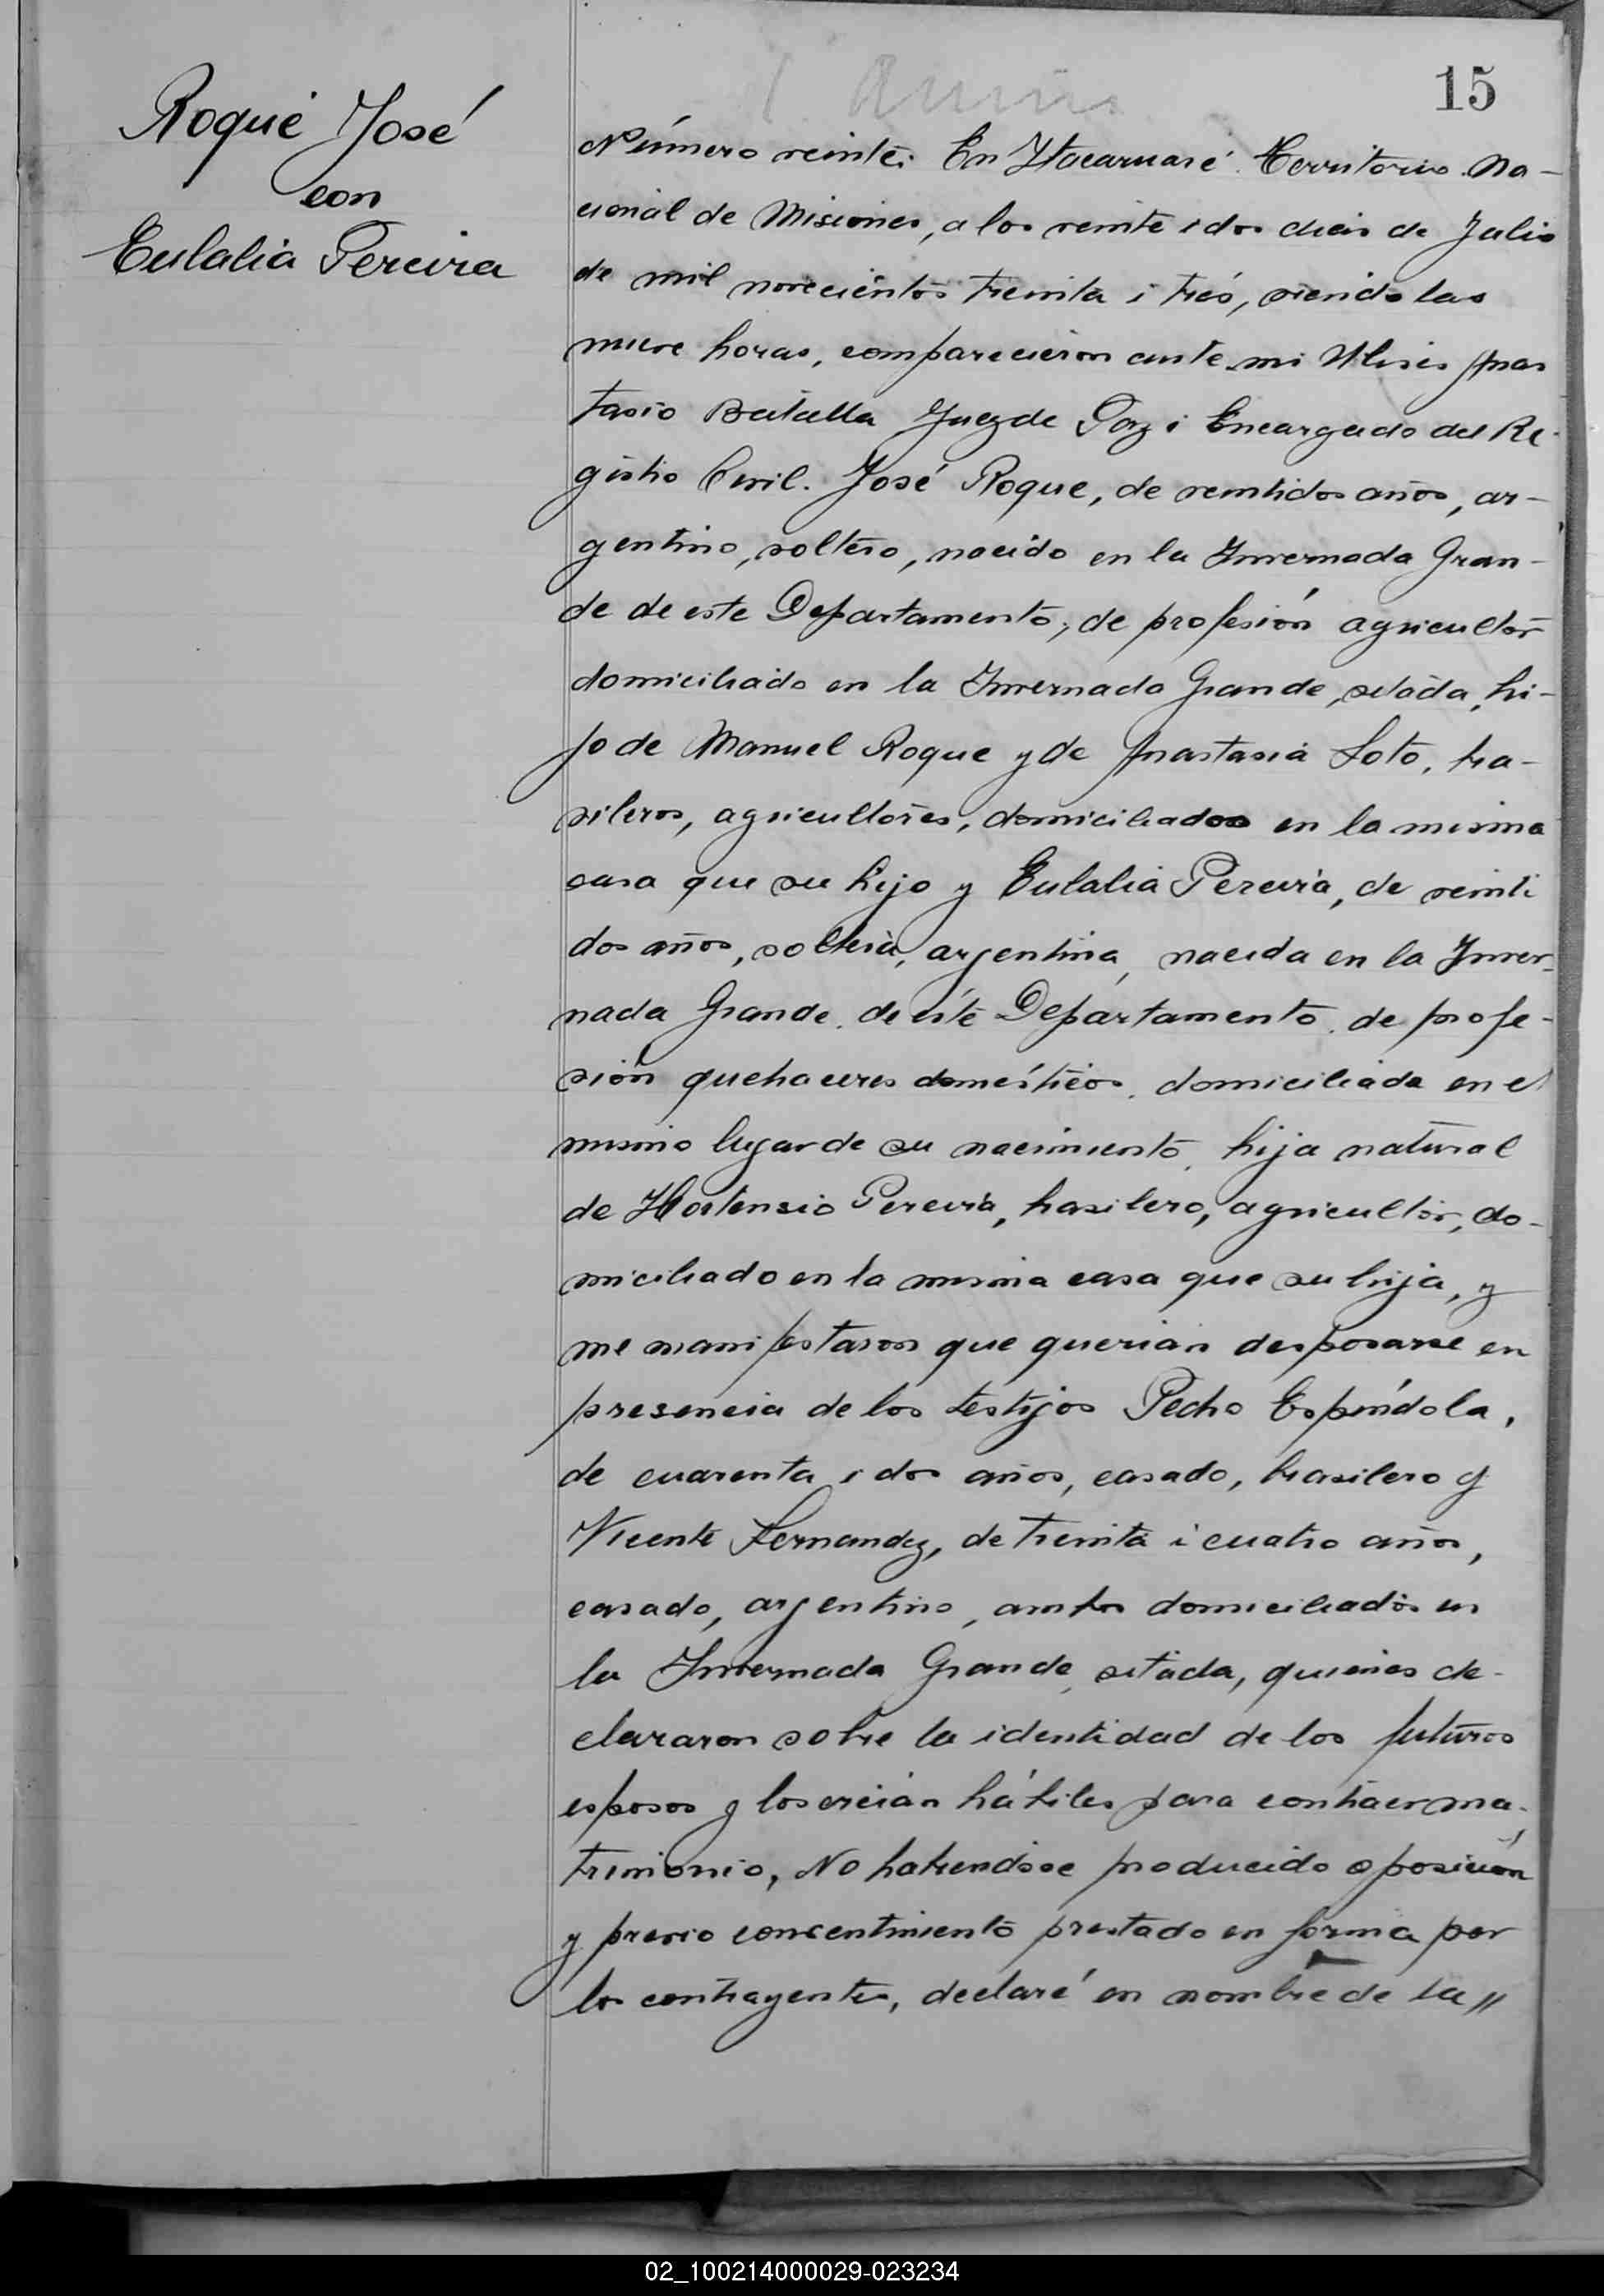 15
Roque José
con
Eulalia Pereira
Número veinte. En Itacaruaré Territorio Na-
cional de Misiones, a los veinte i dos dias de Julio
de mil novecientos treinta i tres, siendo las
nueve horas, comparecieron ante mi Ulises Anas
tasio Batalla Juez de Paz i Encargado del Re-
gistro Civil. José Roque, de veintidos años, ar-
gentino, soltero, nacido en la Invernada Gran-
de de este Departamento, de profesión agricultor
domiciliado en la Invernada Grande, sitada, hi-
jo de Manuel Roque y de Anastasia Soto, bra-
sileros, agricultores, domiciliados en la misma
casa que su hijo y Eulalia Pereira, de veinti
dos años, soltera, argentina, nacida en la Inver-
nada Grande, de este Departamento, de profe-
sión quehaceres domésticos, domiciliada en el
mismo lugar de su nacimiento, hija natural
de Hortensio Pereira, brasilero, agricultor, do-
miciliado en la misma casa que su hija, y
me manifestaron que querian desposarse en
presencia de los testigos Pedro Espíndola,
de cuarenta i dos años, casado, brasilero y
Vicente Fernandez, de treinta i cuatro años,
casado, argentino, ambos domiciliados en
la Invernada Grande, sitada, quienes de-
clararon sobre la identidad de los futuros
esposos y los creian hábiles para contraer ma-
trimonio, No habiendose producido oposición
y previo consentimiento prestado en forma por
los contrayentes, declaré en nombre de la //
02_100214000029-023234